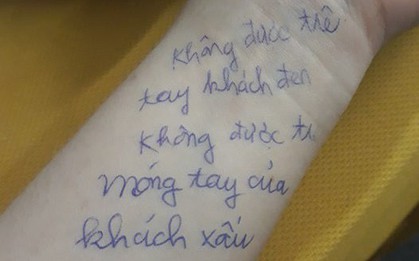 không được trê
tay khách đen
không được tr
móng tay của
khách xấu